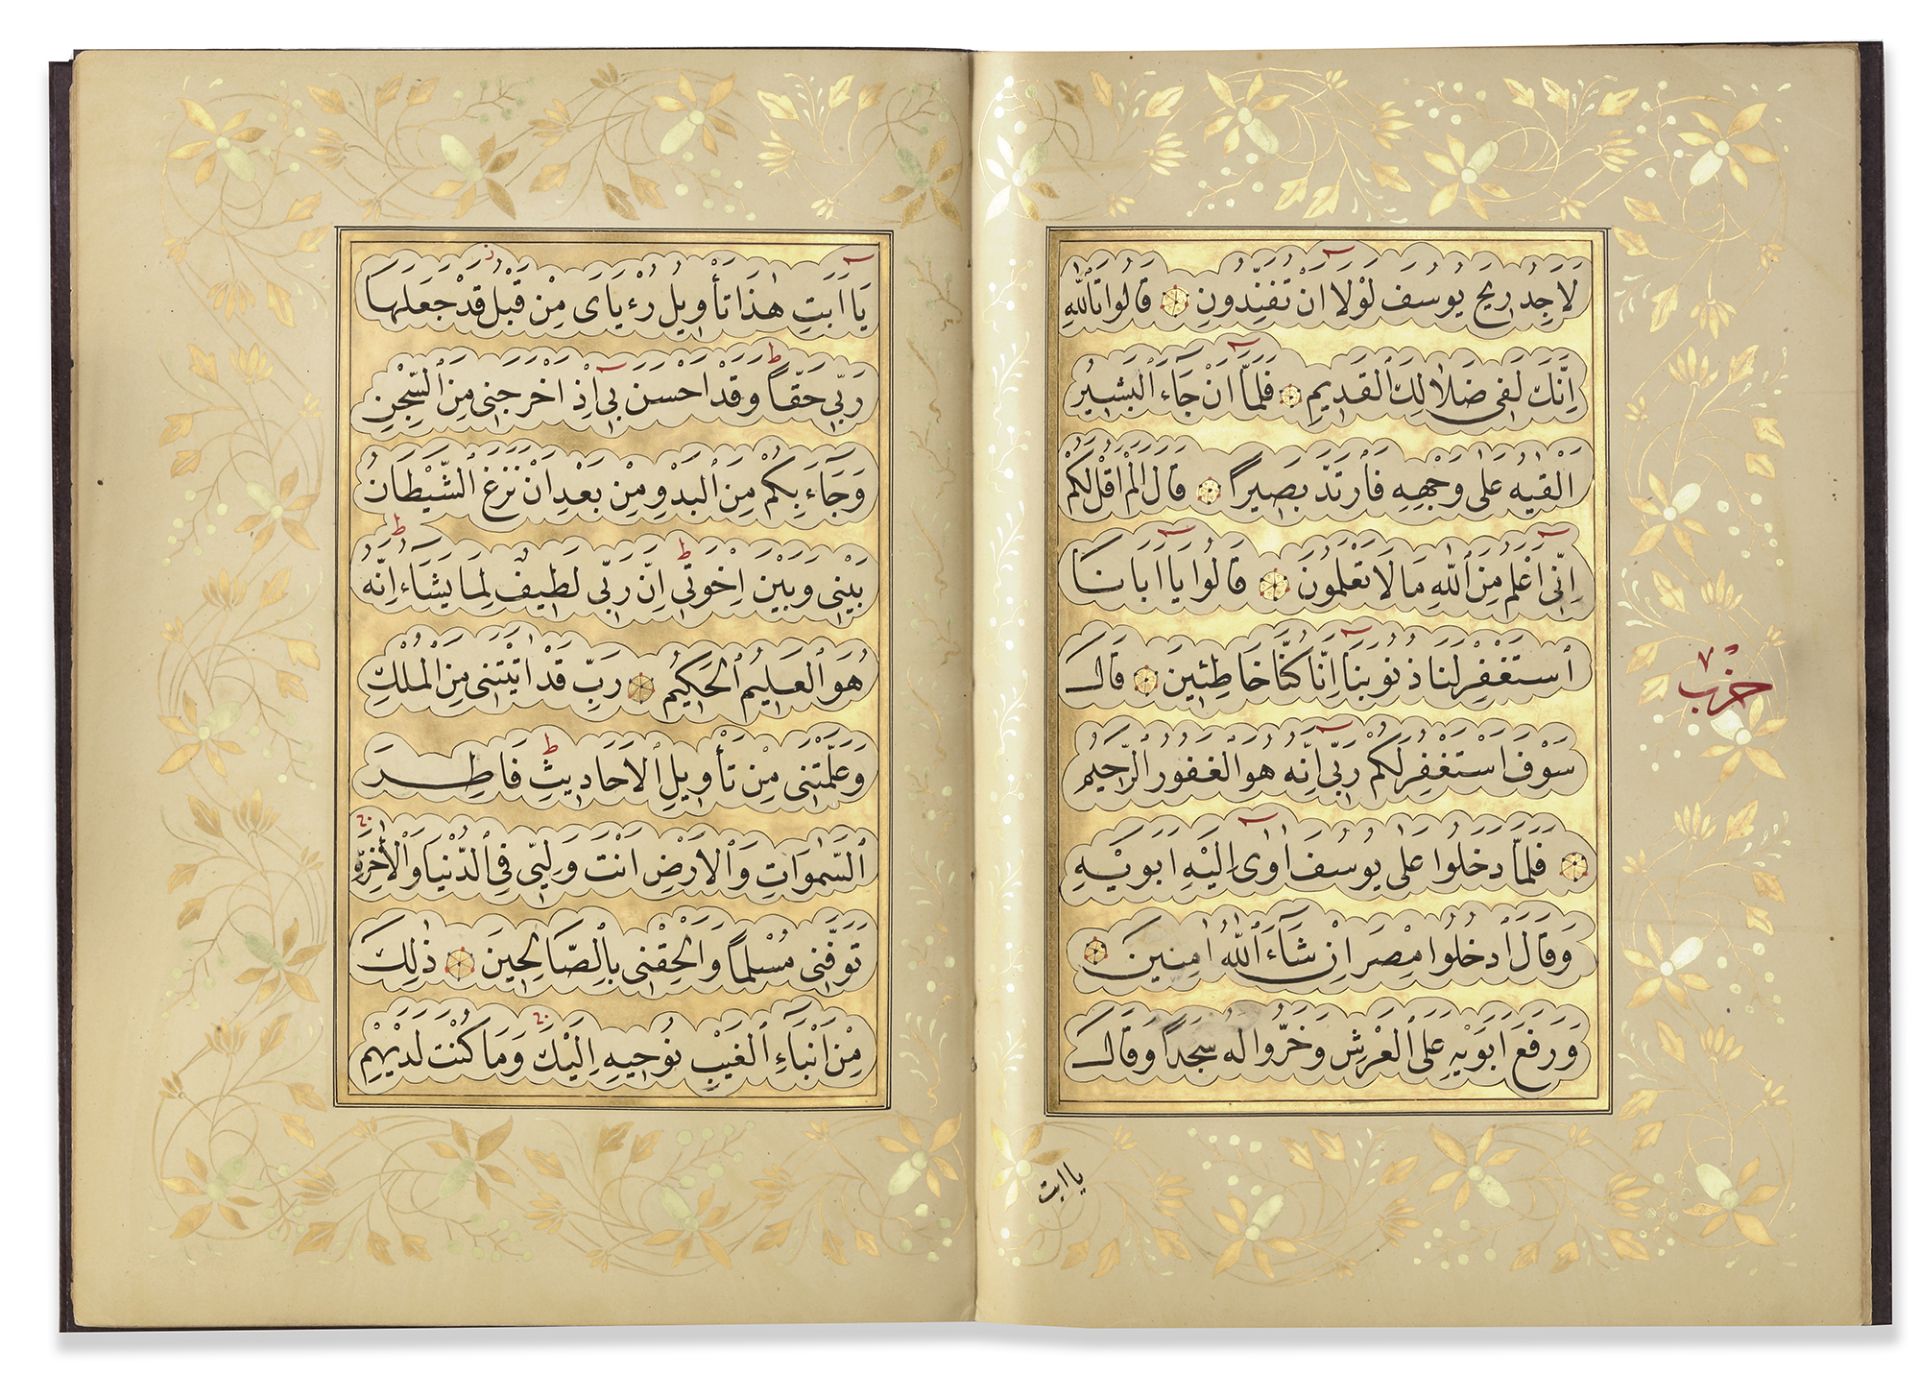 لَاَجِدُ رٖيحَ يُوسُفَ لَوْلَٓا اَنْ تُفَنِّدُونِ ۞ قَالُوا تَاللّٰهِ
اِنَّكَ لَفٖى ضَلَالِكَ الْقَدٖيمِ ۞ فَلَمَّٓا اَنْ جَٓاءَ الْبَشٖيرُ
اَلْقٰيهُ عَلٰى وَجْهِهٖ فَارْتَدَّ بَصٖيراً ۞ قَالَ اَلَمْ اَقُلْ لَكُمْ
اِنّٖٓى اَعْلَمُ مِنَ اللّٰهِ مَا لَا تَعْلَمُونَ ۞ قَالُوا يَٓا اَبَانَا
اسْتَغْفِرْ لَنَا ذُنُوبَنَٓا اِنَّا كُنَّا خَاطِئٖينَ ۞ قَالَ
سَوْفَ اَسْتَغْفِرُ لَكُمْ رَبّٖٓى اِنَّهُ هُوَ الْغَفُورُ الرَّحٖيمُ
۞ فَلَمَّا دَخَلُوا عَلٰى يُوسُفَ اٰوٰٓى اِلَيْهِ اَبَوَيْهِ
وَقَالَ ادْخُلُوا مِصْرَ اِنْ شَٓاءَ اللّٰهُ اٰمِنٖينَ ۞
وَرَفَعَ اَبَوَيْهِ عَلَى الْعَرْشِ وَخَرُّوا لَهُ سُجَّداً وَقَالَ
حزب
يا ابت
يَٓا اَبَتِ هٰذَا تَأْوٖيلُ رُءْيَايَ مِنْ قَبْلُ قَدْ جَعَلَهَا
رَبّٖى حَقّاًۜ وَقَدْ اَحْسَنَ بٖٓى اِذْ اَخْرَجَنٖى مِنَ السِّجْنِ
وَجَٓاءَ بِكُمْ مِنَ الْبَدْوِ مِنْ بَعْدِ اَنْ نَزَغَ الشَّيْطَانُ
بَيْنٖى وَبَيْنَ اِخْوَتٖى اِنَّ رَبّٖى لَطٖيفٌ لِمَا يَشَٓاءُ اِنَّهُ
هُوَ الْعَلٖيمُ الْحَكٖيمُ ۞ رَبِّ قَدْ اٰتَيْتَنٖى مِنَ الْمُلْكِ
وَعَلَّمْتَنٖى مِنْ تَأْوٖيلِ الْاَحَادٖيثِ فَاطِرَ
السَّمٰوَاتِ وَالْاَرْضِ اَنْتَ وَلِيّٖى فِى الدُّنْيَا وَالْاٰخِرَةِ
تَوَفَّنٖى مُسْلِماً وَاَلْحِقْنٖى بِالصَّالِحٖينَ ۞ ذٰلِكَ
مِنْ اَنْبَٓاءِ الْغَيْبِ نُوحٖيهِ اِلَيْكَ وَمَا كُنْتَ لَدَيْهِمْ